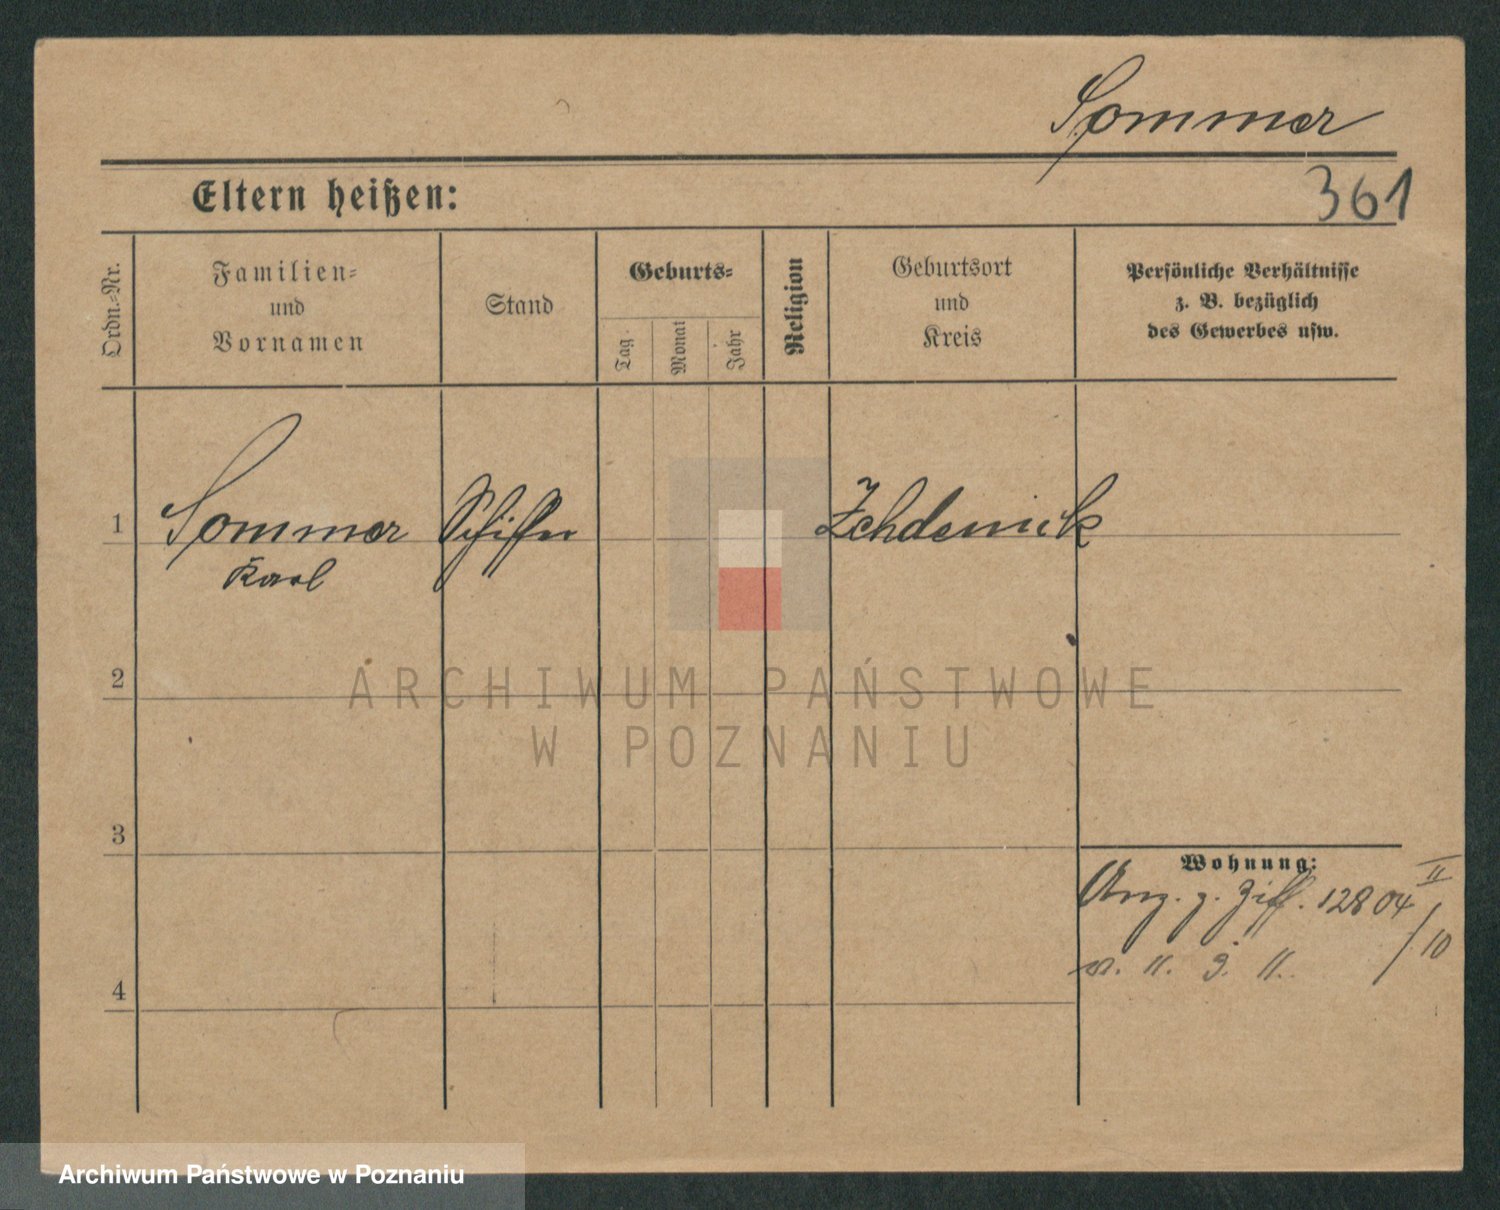 Sommer
361
Eltern heißen:
Ordn.=Nr.
Familien=
und
Vornamen
Stand
Geburts=
Tag.
Monat
Jahr
Religion
Geburtsort
und
Kreis
Persönliche Verhältnisse
z. B. bezüglich
des Gewerbes usw.
1 Sommer Schiffer Zehdenick
Karl
2
ARCHIWUM PAŃSTWOWE
W POZNANIU
3
Wohnung:
Ang. z. Ziff. 12804 II/10
v. 11. 9. 11.
4
Archiwum Państwowe w Poznaniu